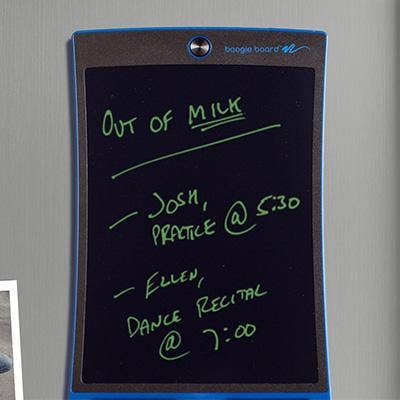 boogie board
OUT OF MILK
— JOSH,
PRACTICE @ 5:30
— ELLEN,
DANCE RECITAL
@ 7:00